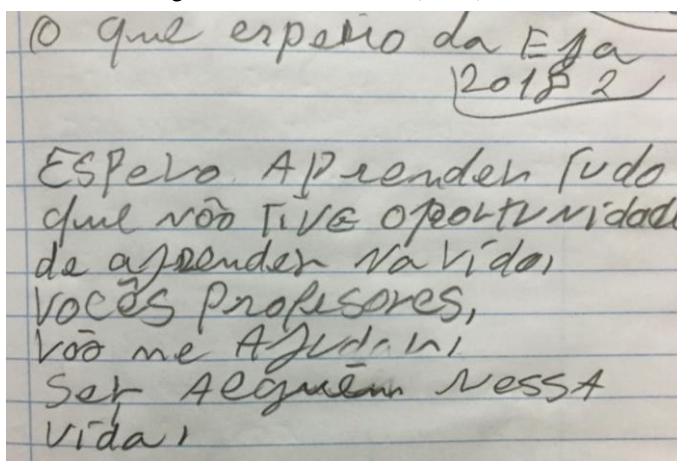 O que espero da Eja
2018 2
ESPero APrender Tudo
que não TIVE OPORTUNidade
de aprender Na Vida,
VOCÊS Profesores,
Vão me AJudar,
Ser ALguém NESSA
Vida,